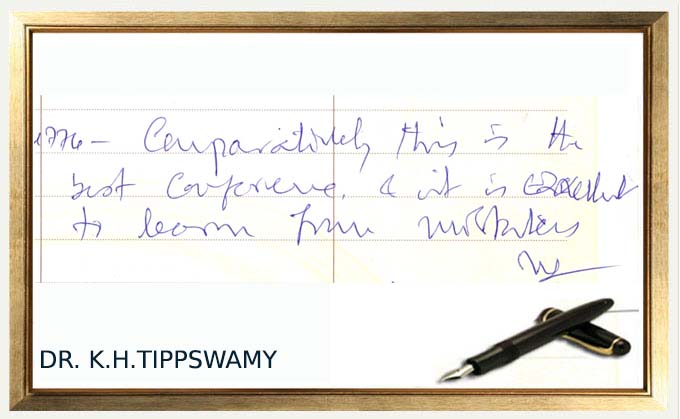 1776 - Comparatively this is the
best Conference. & it is Excellent
to learn from mistakes
DR. K.H.TIPPSWAMY